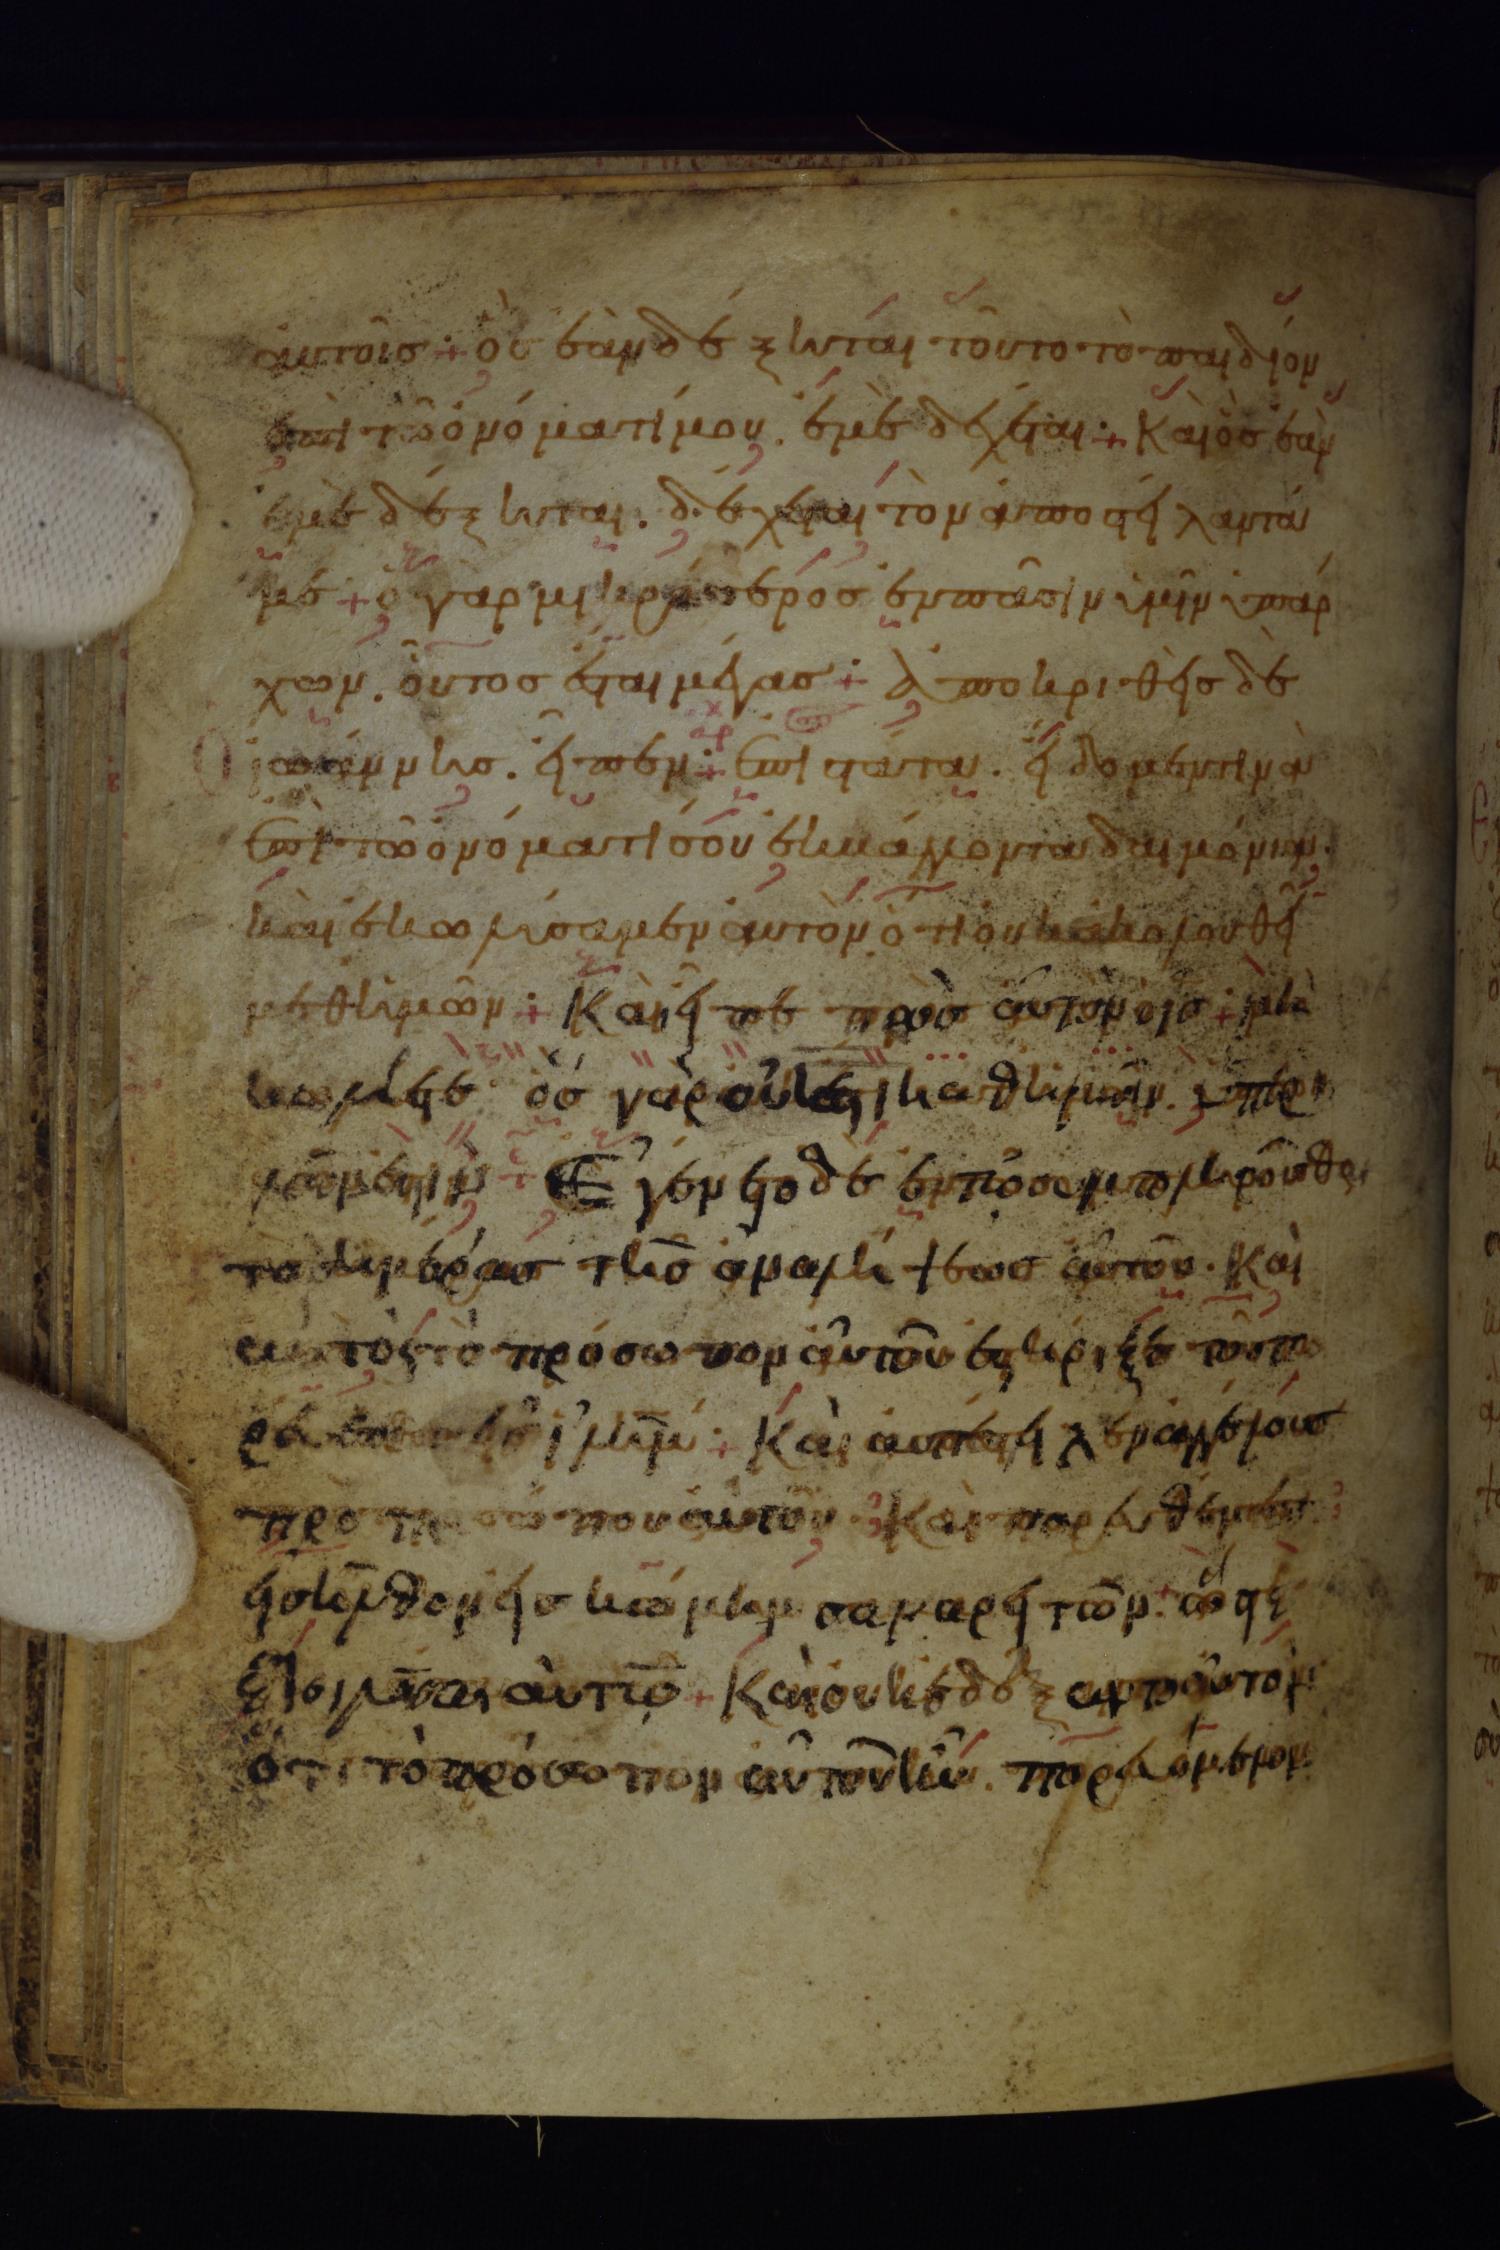 αυτοῖσ + ὃσ ἐὰν δέξηται τοῦτο τὸ παιδίον
ἐπὶ τῶ ὀνόματί μου. ἐμὲ δέχεται + Καὶ ὃσ ἐὰν
ἐμὲ δέξηται. δέχεται τὸν ἀποστείλαντά
με + ὁ γὰρ μικρότεροσ ἐν πᾶσιν ὑμῖν ὑπάρ
χων. οὗτοσ ἔσται μέγασ + Ἀποκριθεὶσ δὲ
ἰωάννησ. εἶπεν + ἐπιστάτα. εἴδομέν τινὰ
ἐπὶ τῶ ὀνόματί σου ἐκβάλλοντα δαιμόνια.
καὶ ἐκωλύσαμεν αὐτὸν ὅτι οὐκ ἀκολουθεῖ
μεθ ἡμῶν + Καὶ εἶπε πρὸσ αὐτὸν ὁ ισ + μὴ
κωλύετε ὃσ γὰρ οὐκ ἔστι καθ ἡμῶν. ὑπὲρ
ὑμῶν ἐστιν + Ἐγένετο δὲ ἐν τῶ συμπληροῦσθαι
τὰσ ἡμέρασ τῆσ ἀναλήψεωσ αὐτοῦ. Καὶ
αὐτὸσ τὸ πρόσωπον αὐτοῦ ἐστήριξε τοῦ πο
ρεύεσθαι εἰσ ιλημ + Καὶ ἀπέστειλεν ἀγγέλουσ
πρὸ προσώπου αὐτοῦ Καὶ πορευθέντεσ
εἰσῆλθον εἰσ κώμην σαμαρειτῶν. ὥστε
ἑτοιμάσαι αὐτῶ + Καὶ οὐκ ἐδέξαντο αὐτόν.
ὅτι τὸ πρόσωπον αὐτοῦ ἦν. πορευόμενον